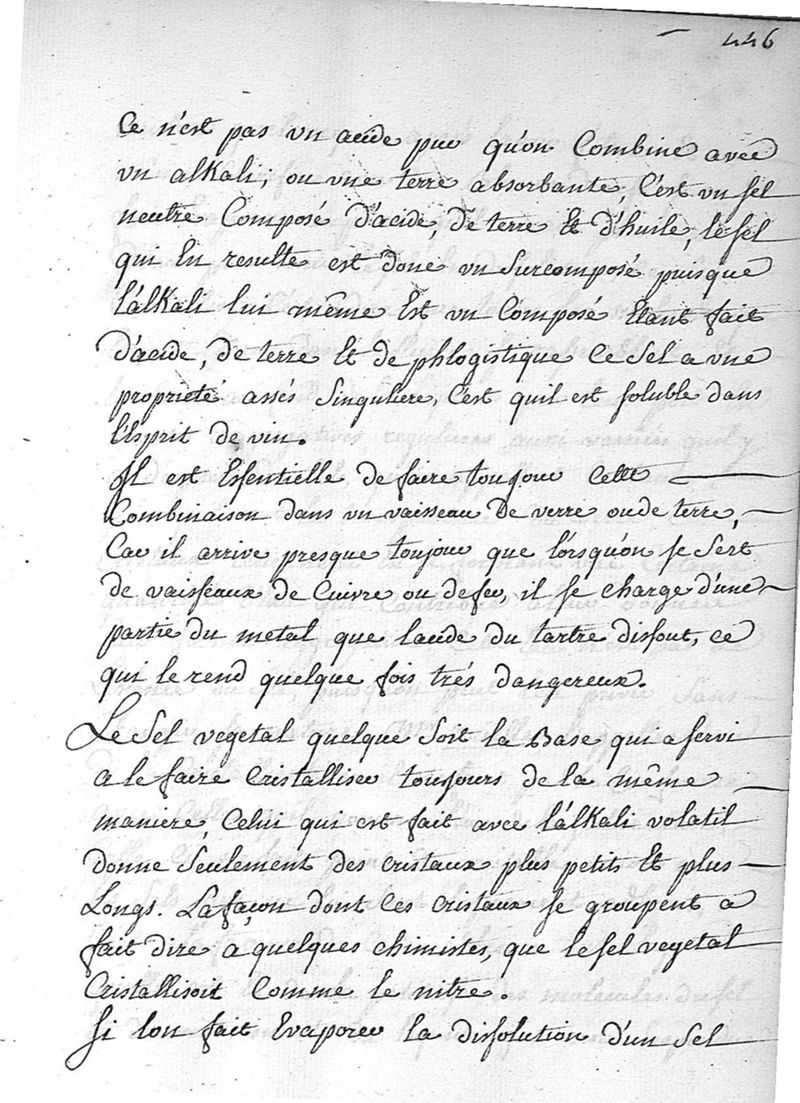 446
Ce n'est pas un acide pur qu'on Combine avec
un alkali; ou une terre absorbante, C'est un sel
neutre Composé d'acide, de terre Et d'huile, le sel
qui En resulte est donc un Surcomposé puisque
l'alkali lui même Est un Composé Etant fait
d'acide, de terre Et de phlogistique Ce Sel a une
proprieté assés Singuliere, C'est quil est soluble dans
l'Esprit de vin.
Il est Essentielle de faire toujour Cette
Combinaison dans un vaisseau de verre ou de terre,
Car il arrive presque toujour que lorsqu'on se Sert
de vaisseaux de Cuivre ou de fer, il se charge d'une
partie du metal que lacide du tartre dissout, ce
qui le rend quelque fois trés dangereux.
Le Sel vegetal quelque Soit la Base qui a servi
a le faire Cristalliser toujours de la même
maniere, Celui qui est fait avec l'alkali volatil
donne Seulement des cristaux plus petits Et plus
Longs. La façon dont Ces Cristaux se groupent a
fait dire a quelques chimistes, que le sel vegetal
Cristallisoit Comme le nitre.
Si lon fait Evaporer la dissolution d'un Sel